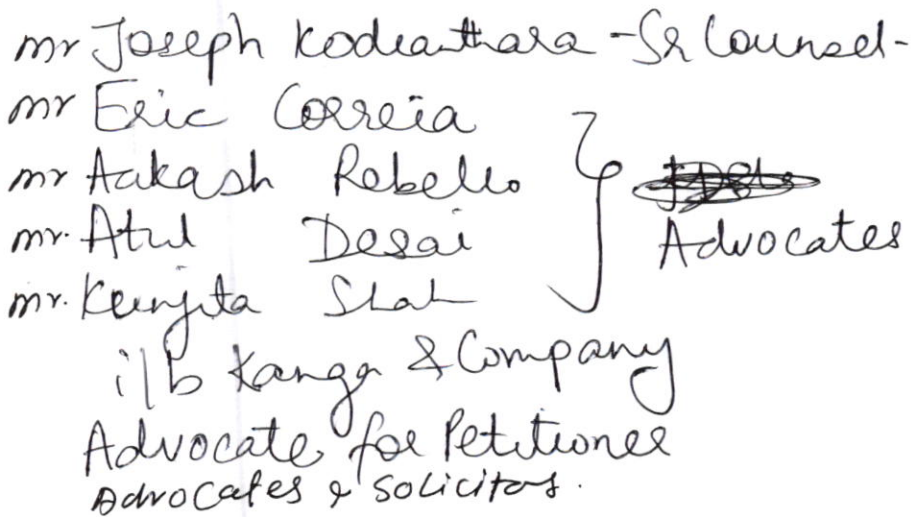 mr Joseph Kodianthara - Sr Counsel -
mr Eric Correia
mr Aakash Rebello
mr. Atul Desai
mr. Kunjita Shah
Advocates
i/b Kanga & Company
Advocate for Petitioner
Advocates & Solicitors.